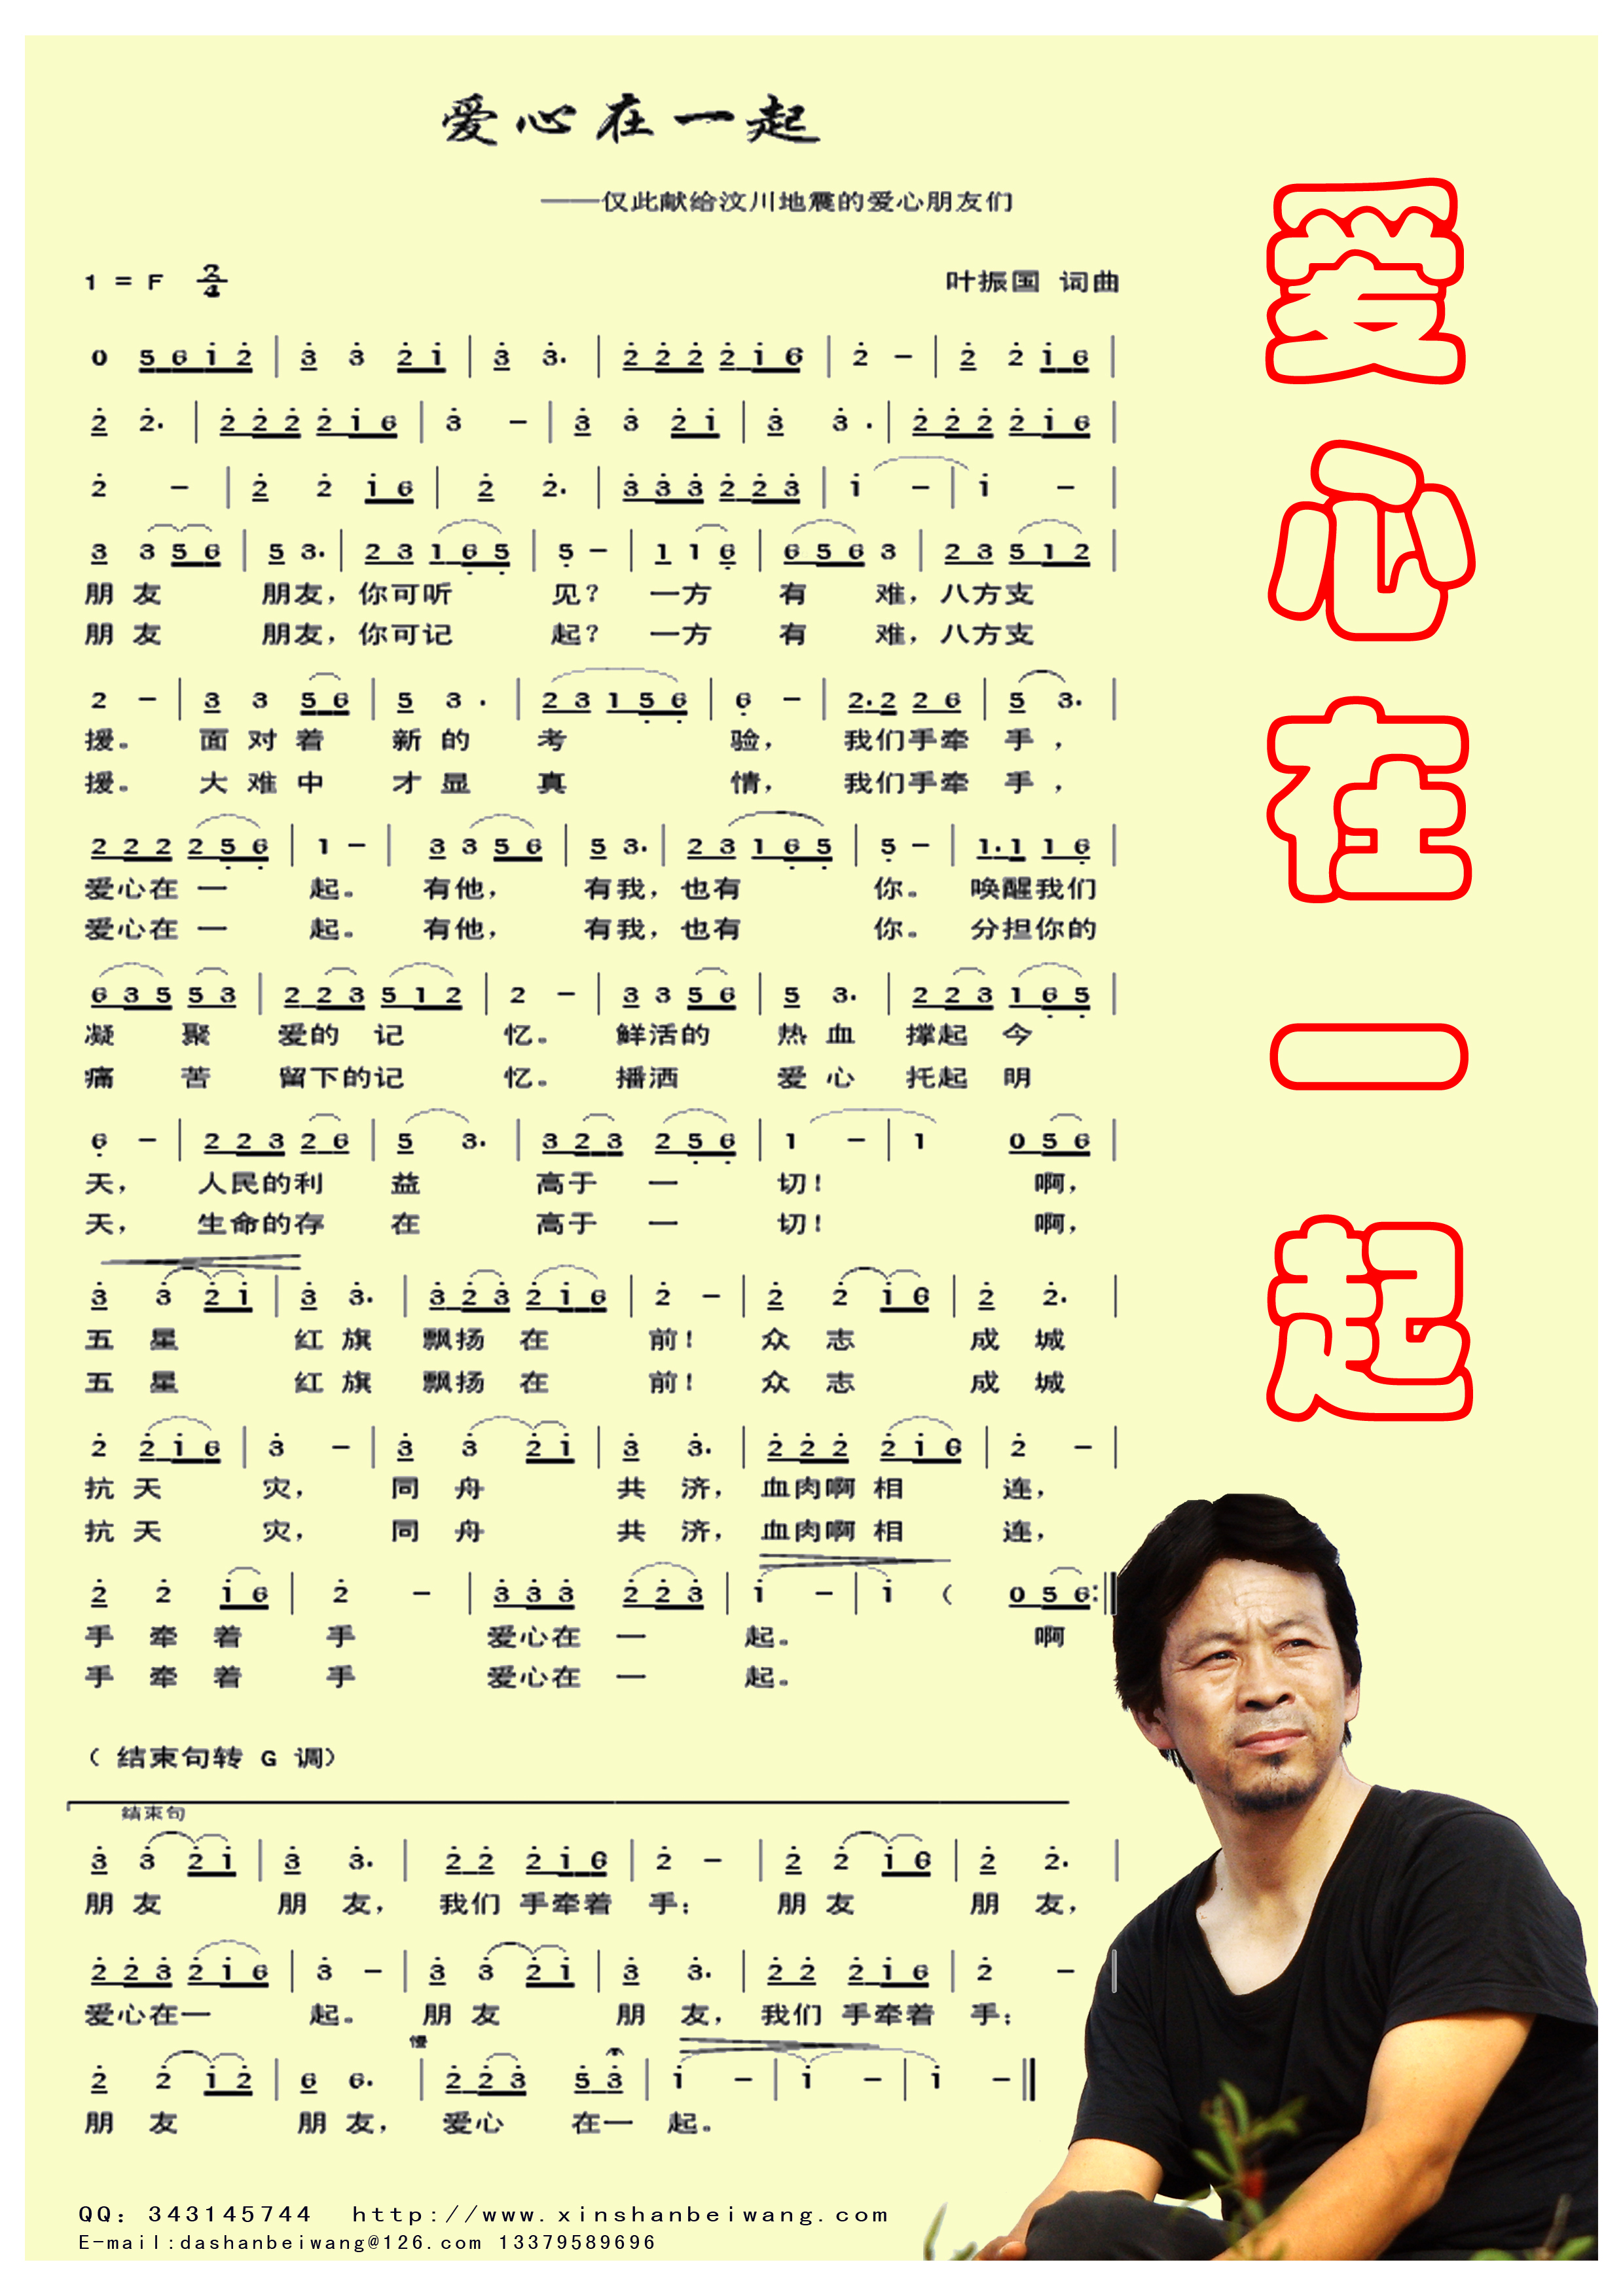 爱心在一起
——仅此献给汶川地震的爱心朋友们
1 = F 2/4 叶振国 词曲
0 5 6 i 2 | 3 3 2 i | 3 3. | 2 2 2 2 i 6 | 2 － | 2 2 i 6 |
2 2. | 2 2 2 2 i 6 | 3 － | 3 3 2 i | 3 3. | 2 2 2 2 i 6 |
2 － | 2 2 i 6 | 2 2. | 3 3 3 2 2 3 | i － | i － |
3 3 5 6 | 5 3. | 2 3 1 6 5 | 5 － | 1 1 6 | 6 5 6 3 | 2 3 5 1 2 |
朋 友 朋友，你可听 见？ 一方 有 难，八方支
朋 友 朋友，你可记 起？ 一方 有 难，八方支
2 － | 3 3 5 6 | 5 3. | 2 3 1 5 6 | 6 － | 2. 2 2 6 | 5 3. |
援。 面 对 着 新 的 考 验， 我们手牵 手，
援。 大 难 中 才 显 真 情， 我们手牵 手，
2 2 2 2 5 6 | 1 － | 3 3 5 6 | 5 3. | 2 3 1 6 5 | 5 － | 1. 1 1 6 |
爱心在 一 起。 有他， 有我，也有 你。 唤醒我们
爱心在 一 起。 有他， 有我，也有 你。 分担你的
6 3 5 5 3 | 2 2 3 5 1 2 | 2 － | 3 3 5 6 | 5 3. | 2 2 3 1 6 5 |
凝 聚 爱的 记 忆。 鲜活的 热 血 撑起 今
痛 苦 留下的记 忆。 播洒 爱 心 托起 明
6 － | 2 2 3 2 6 | 5 3. | 3 2 3 2 5 6 | 1 － | 1 0 5 6 |
天， 人民的利 益 高于 一 切！ 啊，
天， 生命的存 在 高于 一 切！ 啊，
3 3 2 i | 3 3. | 3 2 3 2 i 6 | 2 － | 2 2 i 6 | 2 2. |
五 星 红 旗 飘扬 在 前！ 众 志 成 城
五 星 红 旗 飘扬 在 前！ 众 志 成 城
2 2 i 6 | 3 － | 3 3 2 i | 3 3. | 2 2 2 2 i 6 | 2 － |
抗 天 灾， 同 舟 共 济， 血肉啊 相 连，
抗 天 灾， 同 舟 共 济， 血肉啊 相 连，
2 2 i 6 | 2 － | 3 3 3 2 2 3 | i － | i （ 0 5 6 :‖
手 牵 着 手 爱心在 一 起。 啊
手 牵 着 手 爱心在 一 起。
（ 结束句转 G 调）
结束句
3 3 2 i | 3 3. | 2 2 2 i 6 | 2 － | 2 2 i 6 | 2 2. |
朋 友 朋 友， 我们 手牵着 手； 朋 友 朋 友，
2 2 3 2 i 6 | 3 － | 3 3 2 i | 3 3. | 2 2 2 i 6 | 2 － |
爱心在一 起。 朋 友 朋 友， 我们 手牵着 手；
慢
2 2 i 2 | 6 6. | 2 2 3 5 3 | i － | i － | i － ‖
朋 友 朋 友， 爱心 在一 起。
QQ：343145744 http://www.xinshanbeiwang.com
E-mail:dashanbeiwang@126.com 13379589696
爱心在一起